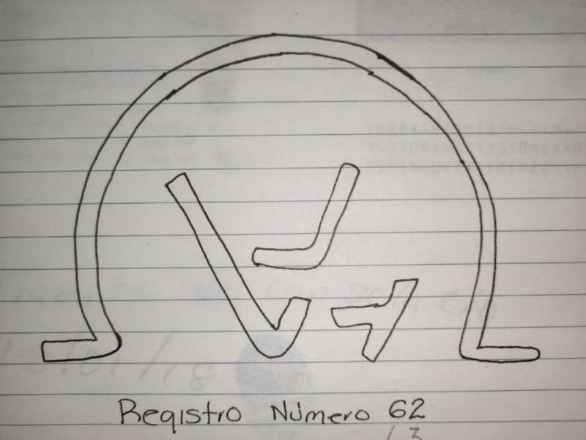 Registro Número 62